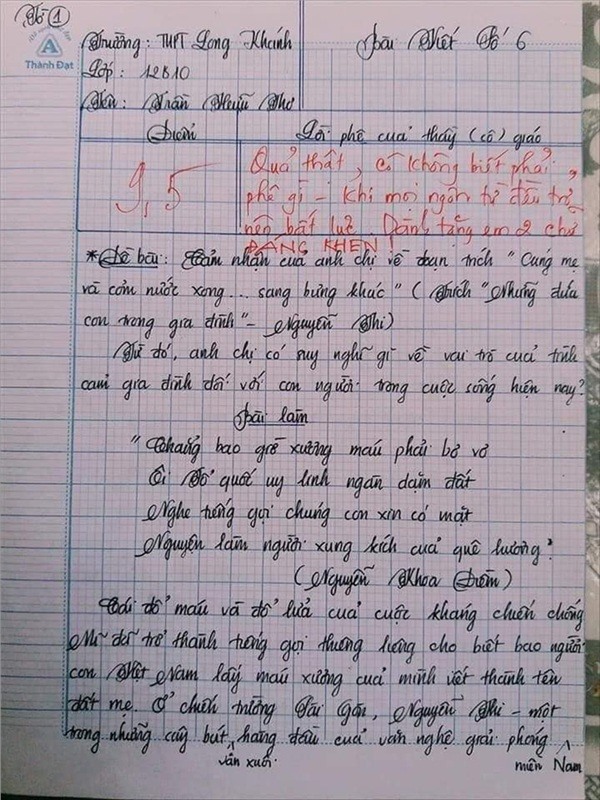 Tờ 1
Thành Đạt
Trường: THPT Long Khánh
Bài Viết Số 6
Lớp: 12B10
Tên: Trần Hữu Thơ
Điểm
Lời phê của thầy (cô) giáo
9,5
Quả thật, cô không biết phải
phê gì - Khi mọi ngôn từ đều trở
nên bất lực. Dành tặng em 2 chữ
ĐÁNG KHEN!
*Đề bài: Cảm nhận của anh chị về đoạn trích "Cúng mẹ
và cơm nước xong... sang bưng khác" (Trích "Những đứa
con trong gia đình" - Nguyễn Thi)
Từ đó, anh chị có suy nghĩ gì về vai trò của tình
cảm gia đình đối với con người trong cuộc sống hiện nay?
Bài làm
"Chẳng bao giờ xương máu phải bơ vơ
Ôi Tổ quốc uy linh ngàn dặm đất
Nghe tiếng gọi chúng con xin có mặt
Nguyện làm người xung kích của quê hương"
(Nguyễn Khoa Điềm)
Cái đổ máu và đổ lửa của cuộc kháng chiến chống
Mĩ đã trở thành tiếng gọi thương lương cho biết bao người
con Việt Nam lấy máu xương của mình viết thành tên
đất mẹ. Ở chiến trường Sài Gòn, Nguyễn Thi - một
trong những cây bút hàng đầu của văn nghệ giải phóng
văn xuôi miền Nam